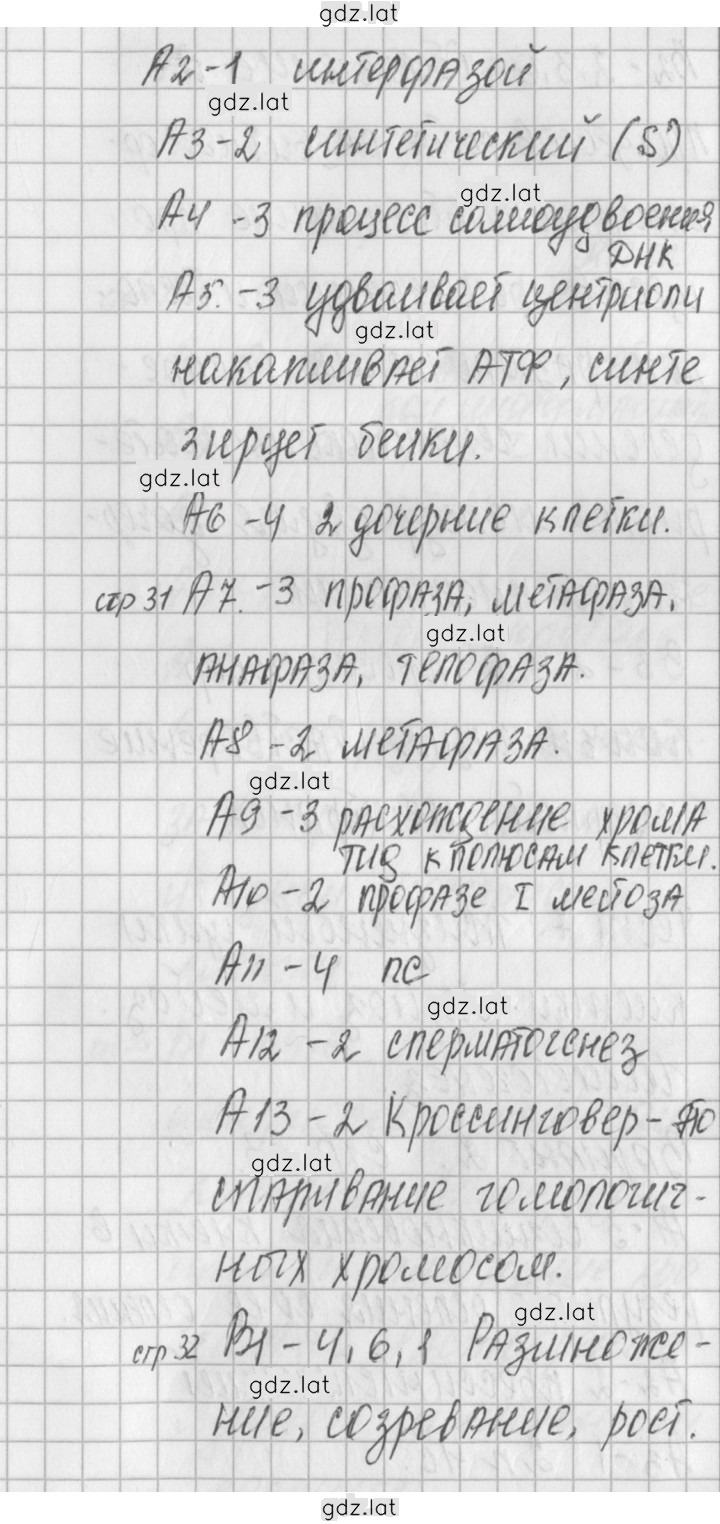 gdz.lat
А2-1 интерфазой
gdz.lat
А3-2 синтетический (S)
gdz.lat
А4 -3 процесс самоудвоения
ДНК
А5.-3 удваивает центриоли
gdz.lat
накапливает АТФ, синте
зирует белки.
gdz.lat
А6 -4 2 дочерние клетки.
стр 31 А7.-3 профаза, метафаза,
gdz.lat
анафаза, телофаза.
А8 -2 метафаза.
gdz.lat
А9 -3 расхождение хрома
тид к полюсам клетки.
А10 -2 профазе I мейоза
А11 -4 nc
gdz.lat
А12 -2 сперматогенез
А13 -2 Кроссинговер - это
gdz.lat
спаривание гомологич-
ных хромосом.
gdz.lat
стр 32 В1 - 4, 6, 1 Размноже-
gdz.lat
ние, созревание, рост.
gdz.lat